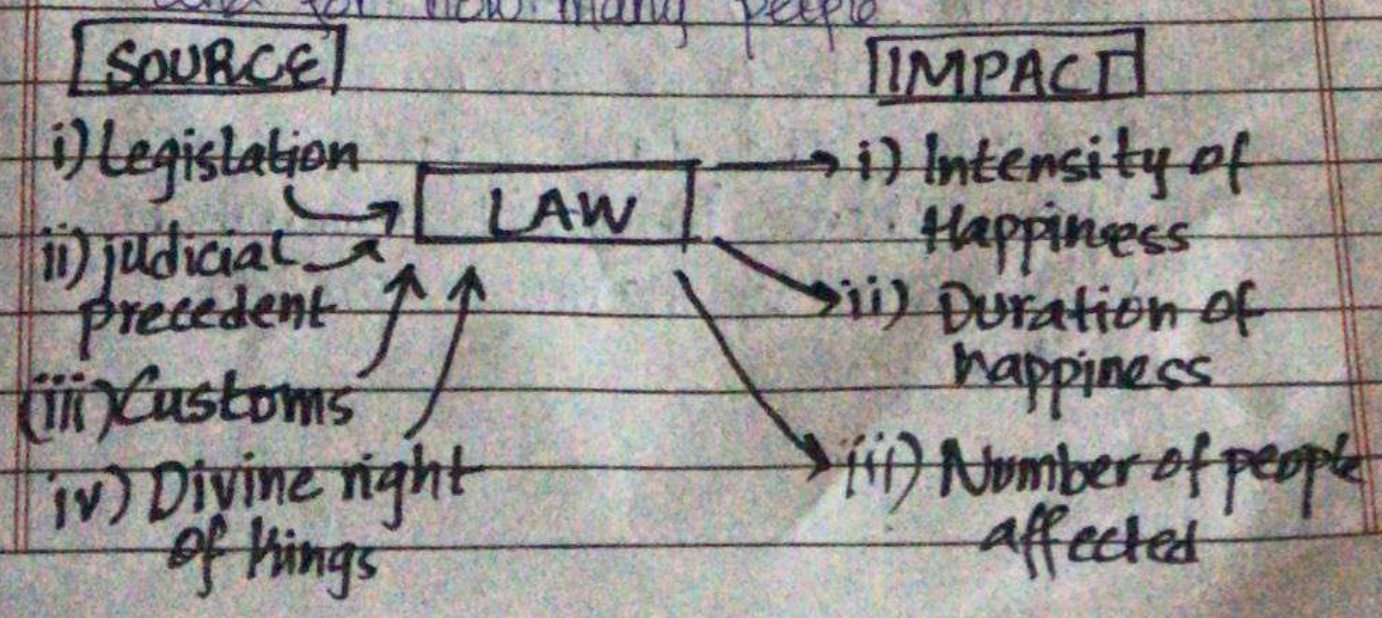 for how many people
SOURCE
i) Legislation
ii) judicial
precedent
(iii) Customs
iv) Divine right
of kings
LAW
IMPACT
i) Intensity of
Happiness
ii) Duration of
happiness
iii) Number of people
affected